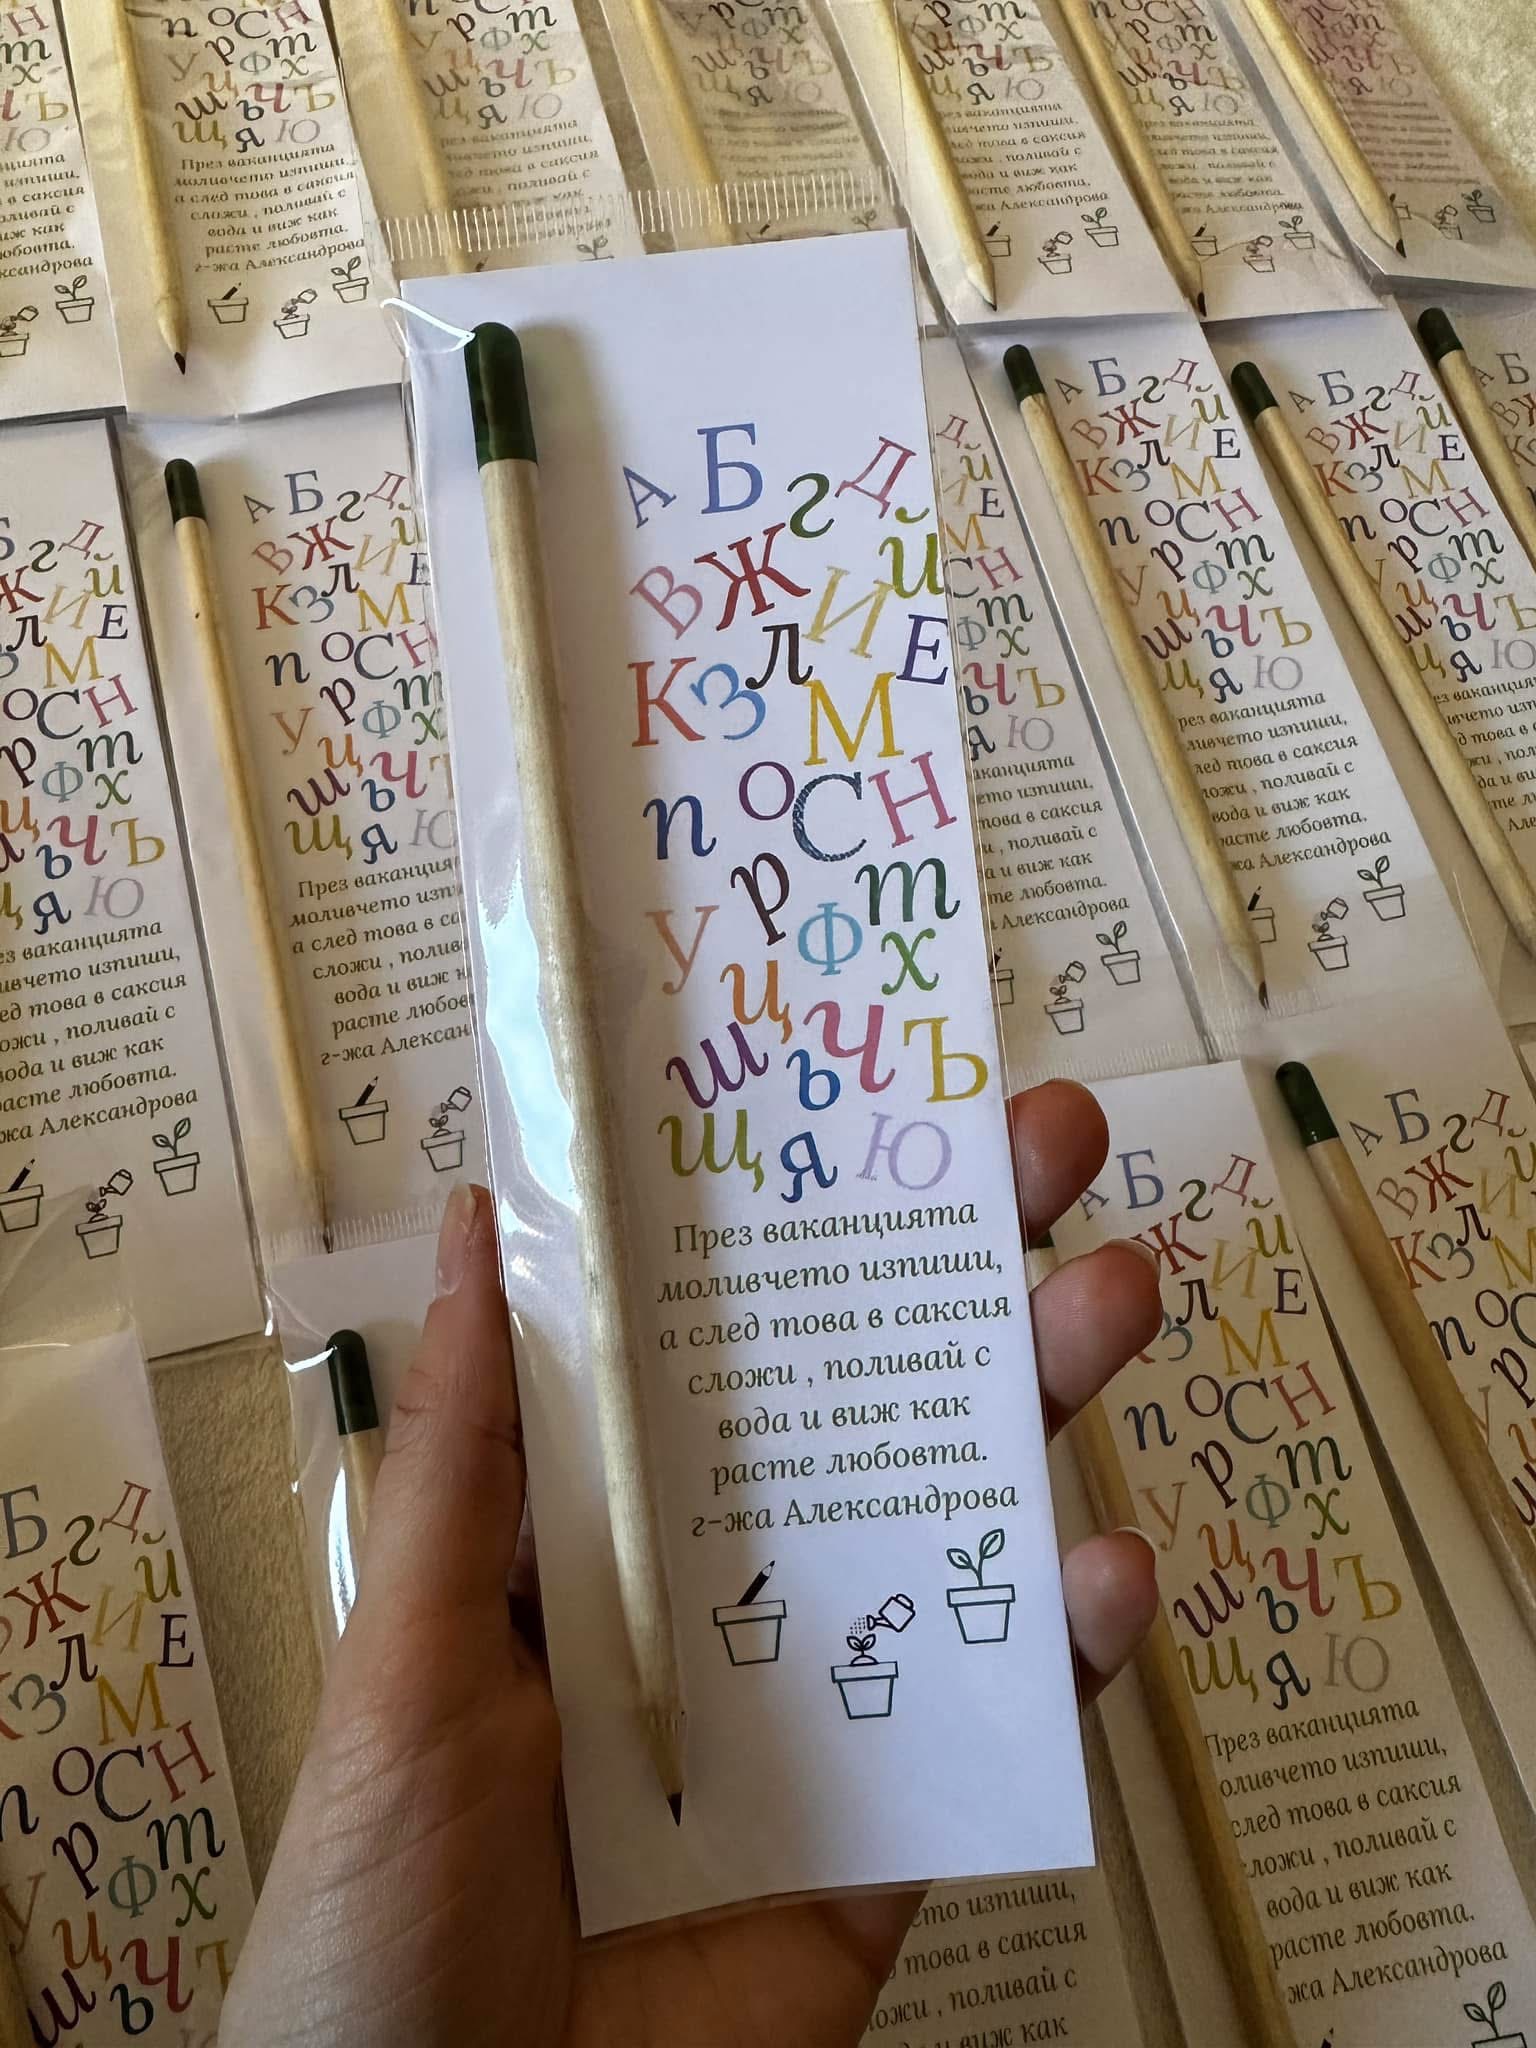 А Б г Д
В Ж И й
К З л М Е
п о С Н
У р Ф т
ц х
ш ь Ч Ъ
Щ я Ю
През ваканцията
моливчето изпиши,
а след това в саксия
сложи , поливай с
вода и виж как
расте любовта.
г-жа Александрова